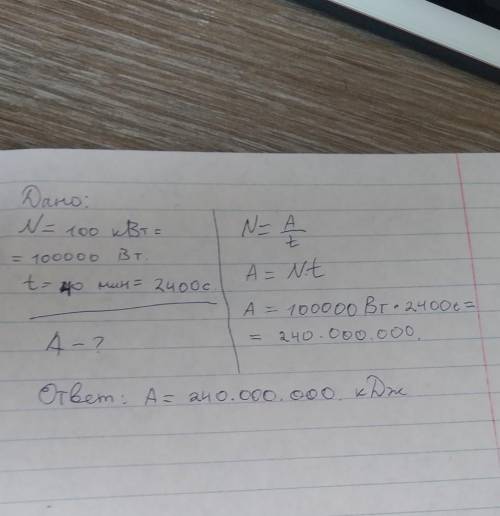 Дано:
N = 100 кВт =
= 100000 Вт.
t = 40 мин = 2400с.
A - ?
N = A/t
A = Nt
A = 100000 Вт · 2400с =
= 240.000.000.
Ответ: A = 240.000.000. кДж